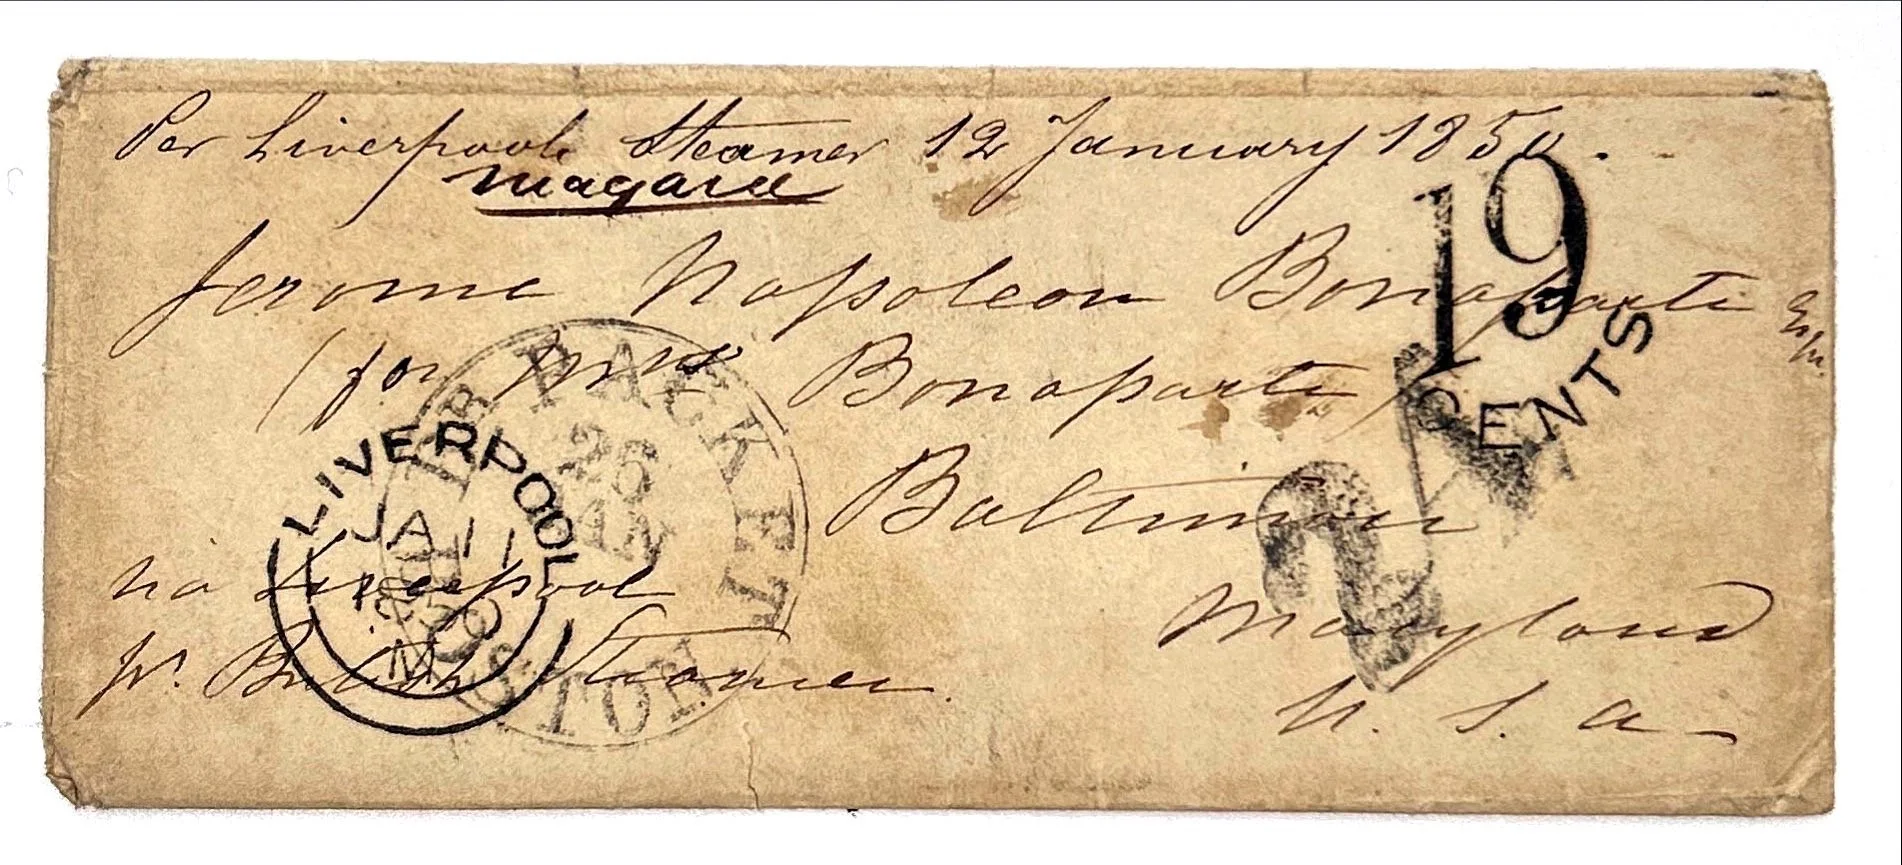 Per Liverpool Steamer 12 January 1850.
Niagara
Jerome Napoleon Bonaparte Esqr.
(for Mrs Bonaparte)
Baltimore
Maryland
U. S. A
via Liverpool
pr. British Steamer.
19 CENTS
24
LIVERPOOL
JA 11
1850
M
BR PACKET
26
JAN
BOSTON